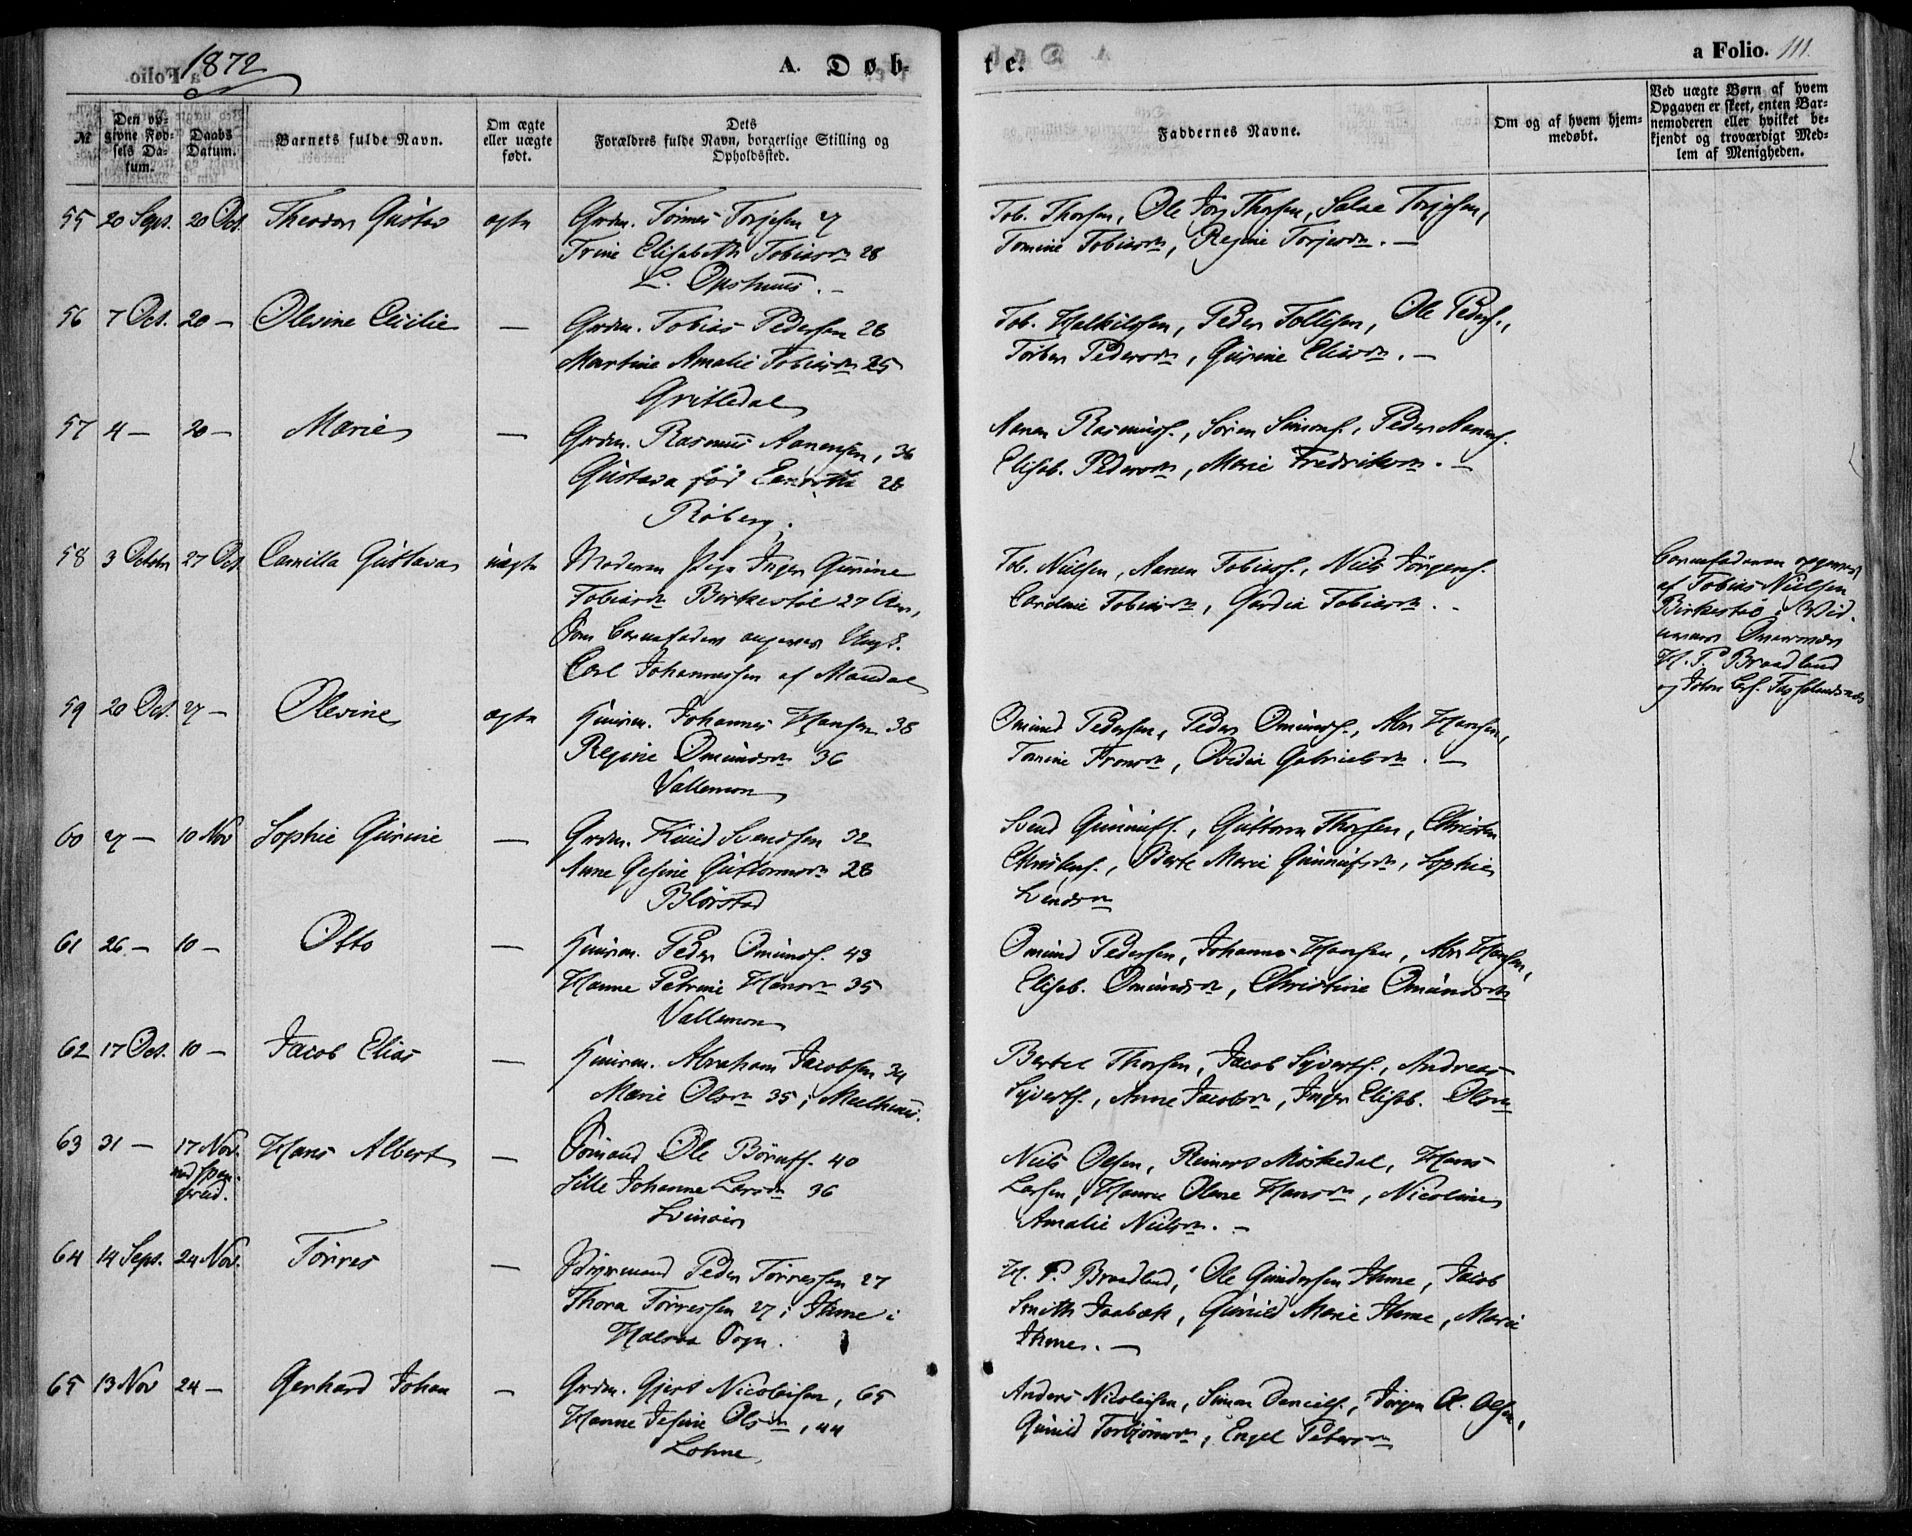 1872
A. Døb-
te.
a Folio. 111.
№
Den op-
givne Fød-
sels Da-
tum.
Daabs
Datum.
Barnets fulde Navn.
Om ægte
eller uægte
født.
Dets
Forældres fulde Navn, borgerlige Stilling og
Opholdssted.
Faddernes Navne.
Om og af hvem hjem-
medøbt.
Ved uægte Børn af hvem
Opgaven er skeet, enten Bar-
nemoderen eller hvilket be-
kjendt og troværdigt Med-
lem af Menigheden.
55 20 Sept. 20 Oct. Theodor Gustav ægte Grdm. Tønnes Torjesen 27
Trine Elisabeth Tobiasdn 28
L. Opshuus. –
Tob. Thorsen, Ole Jørg Thorsen, Salve Torjesen,
Tomine Tobiasdn, Regine Torjesdn. –
56 7 Oct. 20 – Olevine Cecilie – Grdm. Tobias Pedersen 26
Martine Amalie Tobiasdn 25
Gritledal
Tob. Halkilsen, Peder Tollisen, Ole Peders.,
Torber Pedersdn, Gurine Eliasdn. –
57 4 – 20 – Marie – Grdm. Rasmus Aanensen, 36
Gustava fød 28
Røberg.
Aanen Rasmuss., Søren Simons., Peder Aanens.
Elisab. Pedersdn, Marie Fredriksdn. –
58 3 Octobr 27 Oct. Camilla Gustava uægte Moderen Pige Inger Gurine
Tobiasdn Birkestøl 27 Aar,
Som Barnefader angives Ungk.
Carl Johannessen af Mandal
Tob. Nielsen, Aanen Tobiass., Niels Jørgens.
Caroline Tobiasdn, Gardia Tobiasdn. –
Barnefaderen opgives
af Tobias Nielsen
Birkestøl; Vid-
H. P. Braadland
og
59 20 Oct. 27 – Olevine ægte Huusm. Johannes Hansen 38
Regine Omundsdn 36
Vallemon
Omund Pedersen, Peder Omunds., Abr Hansen,
Tomine Fronsdn, Ovidia Gabrielsdn. –
60 27 – 10 Nov Sophie Gurine – Grdm. Knud Svendsen 32
Anne Gesine Guttormsdn 28
Blørstad
Svend Gunnufs., Guttorm Thorsen, Christen
Christens., Berte Marie Gunnufsdn, Sophie
Svendsdn
61 26 – 10 – Otto – Huusm. Peder Omunds. 43
Hanne Petrine Hansdn 35
Vallemon
Omund Pedersen, Johannes Hansen, Abr Hansen,
Elisab. Omundsdn, Christine Omundsdn
62 17 Oct. 10 – Jacob Elias – Huusm. Abraham Jacobsen 34
Marie Olsdn 35; Meelhuus.
Bertel Thorsen, Jacob Syverts., Andreas
Syverts., Anne Jacobsdn, Inger Elisab. Olsdn
63 31 – 17 Nov. Hans Albert – Sømand Ole Børufs. 40
Sille Johanne Larsdn 36
Svinøer
Niels Olsen, Reinert Møskedal, Hans
Larsen, Hanne Olene Hansdn, Nicoline
Amalie Nielsdn. –
64 14 Sept. 24 Nov. Tørres – Styrmand Peder Tørressen 27
Thora Tørressen 27; Ihme i
Halsaa Sogn.
H. P. Braadland, Ole Gundersen Ihme, Jacob
Smith Jaabæk, Gunild Marie Ihme, Marie
Ihme. –
65 13 Nov 24 – Gerhard Johan – Grdm. Gjert Nicolaisen, 65
Hanne Jesine Olsdn, 44
Lohne
Anders Nicolaisen, Simon Daniels., Jørgen A. Olsen,
Gunild Torbjørnsdn, Engel Petersdn